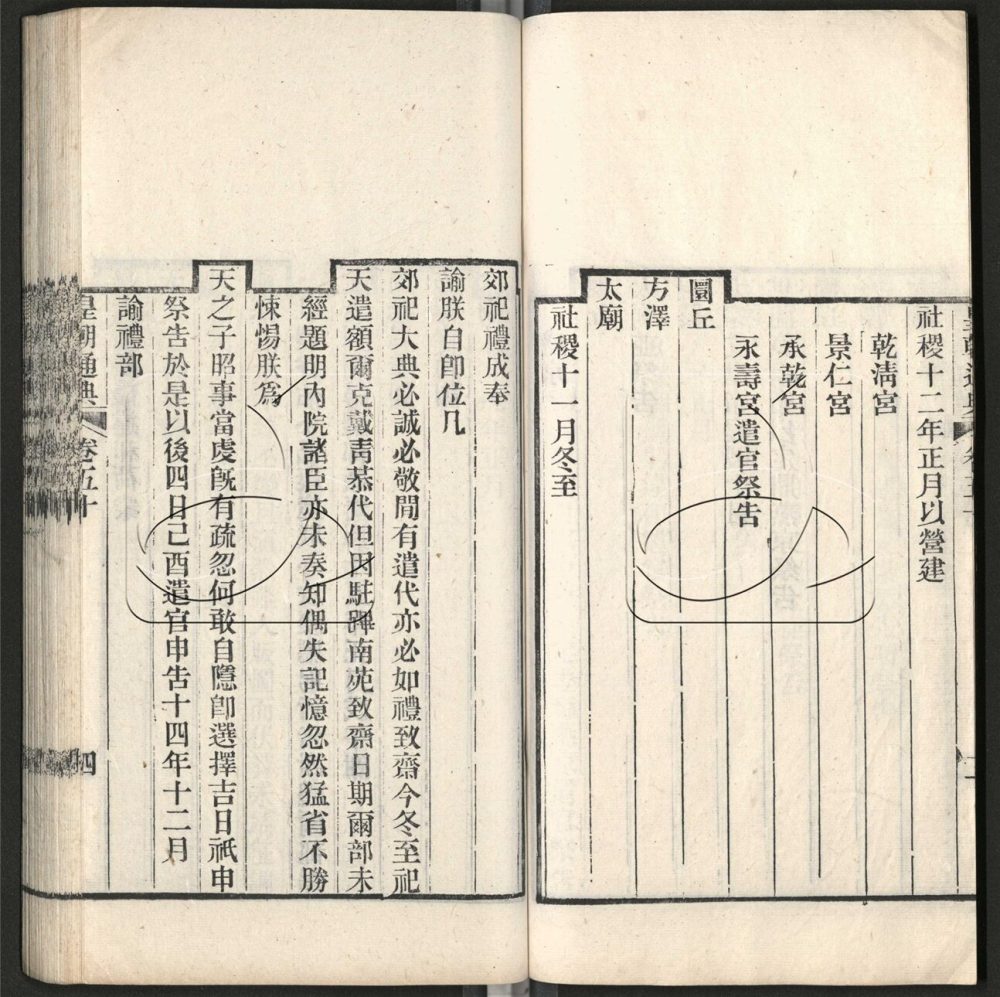 社稷十二年正月以營建
乾清宮
景仁宮
承乾宮
永壽宮遣官祭告
圜丘
方澤
太廟
社稷十一月冬至
郊祀禮成奉
諭朕自卽位凡
郊祀大典必誠必敬閒有遣代亦必如禮致齋今冬至祀
天遣額爾克戴青恭代但因駐蹕南苑致齋日期爾部未
經題明內院諸臣亦未奏知偶失記憶忽然猛省不勝
悚惕朕爲
天之子昭事當虔旣有疏忽何敢自隱卽選擇吉日祇申
祭告於是以後四日己酉遣官申告十四年十二月
諭禮部
皇朝通典 卷五十 四